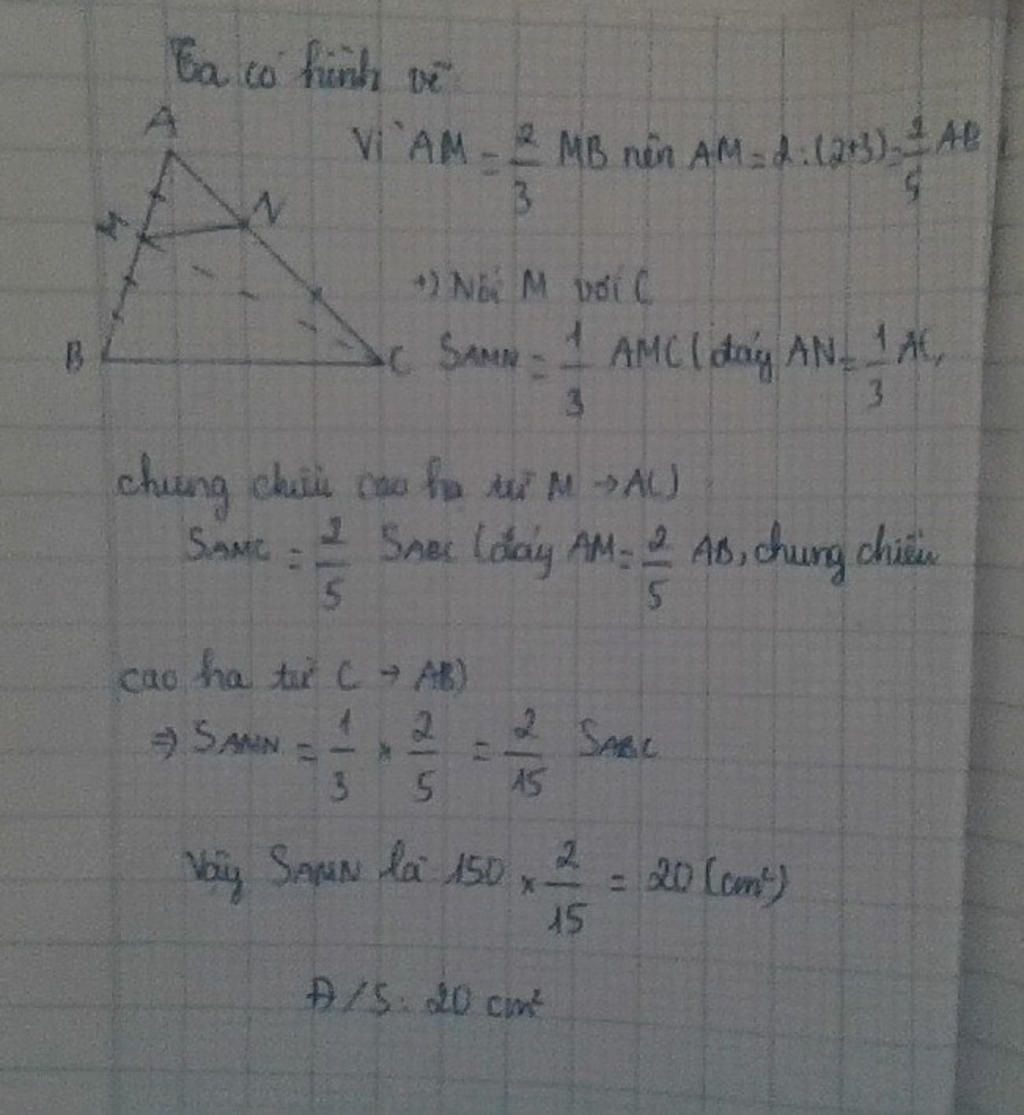 Ta có hình vẽ
A
Vì AM = 2/3 MB nên AM = 2 : (2+3) = 2/5 AB
M
N
+) Nối M với C
B
C
SAMN = 1/3 AMC (đáy AN = 1/3 AC,
chung chiều cao hạ từ M → AC)
SAMC = 2/5 SABC (đáy AM = 2/5 AB, chung chiều
cao hạ từ C → AB)
⇒ SAMN = 1/3 × 2/5 = 2/15 SABC
Vậy SAMN là 150 × 2/15 = 20 (cm²)
Đ/S: 20 cm²